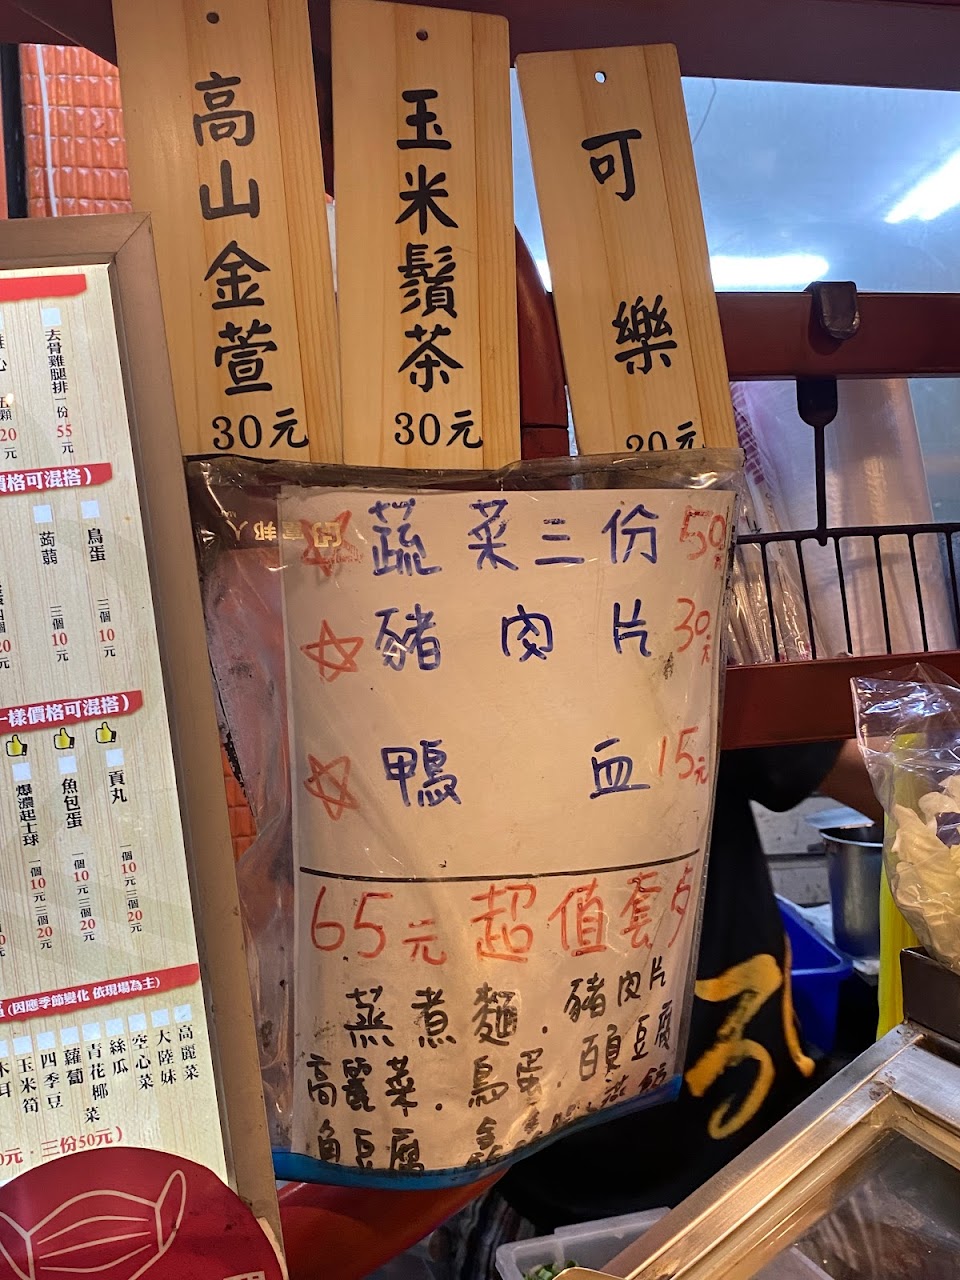 高山金萱
30元
玉米鬚茶
30元
可樂
20元
蔬菜三份 50元
豬肉片 30元
鴨血 15元
65元超值套
蒸煮麵.豬肉片
高麗菜.鳥蛋.百頁豆腐
魚豆腐
去骨雞腿排 一份 55元
五顆
20元
價格可混搭)
鳥蛋 三個10元
蒟蒻 三個10元
一樣價格可混搭)
貢丸 一個10元 三個20元
魚包蛋 一個10元 三個20元
爆濃起士球 一個10元 三個20元
(因應季節變化 依現場為主)
高麗菜
大陸妹
空心菜
絲瓜
青花椰菜
蘿蔔
四季豆
玉米筍
木耳
元.三份50元)